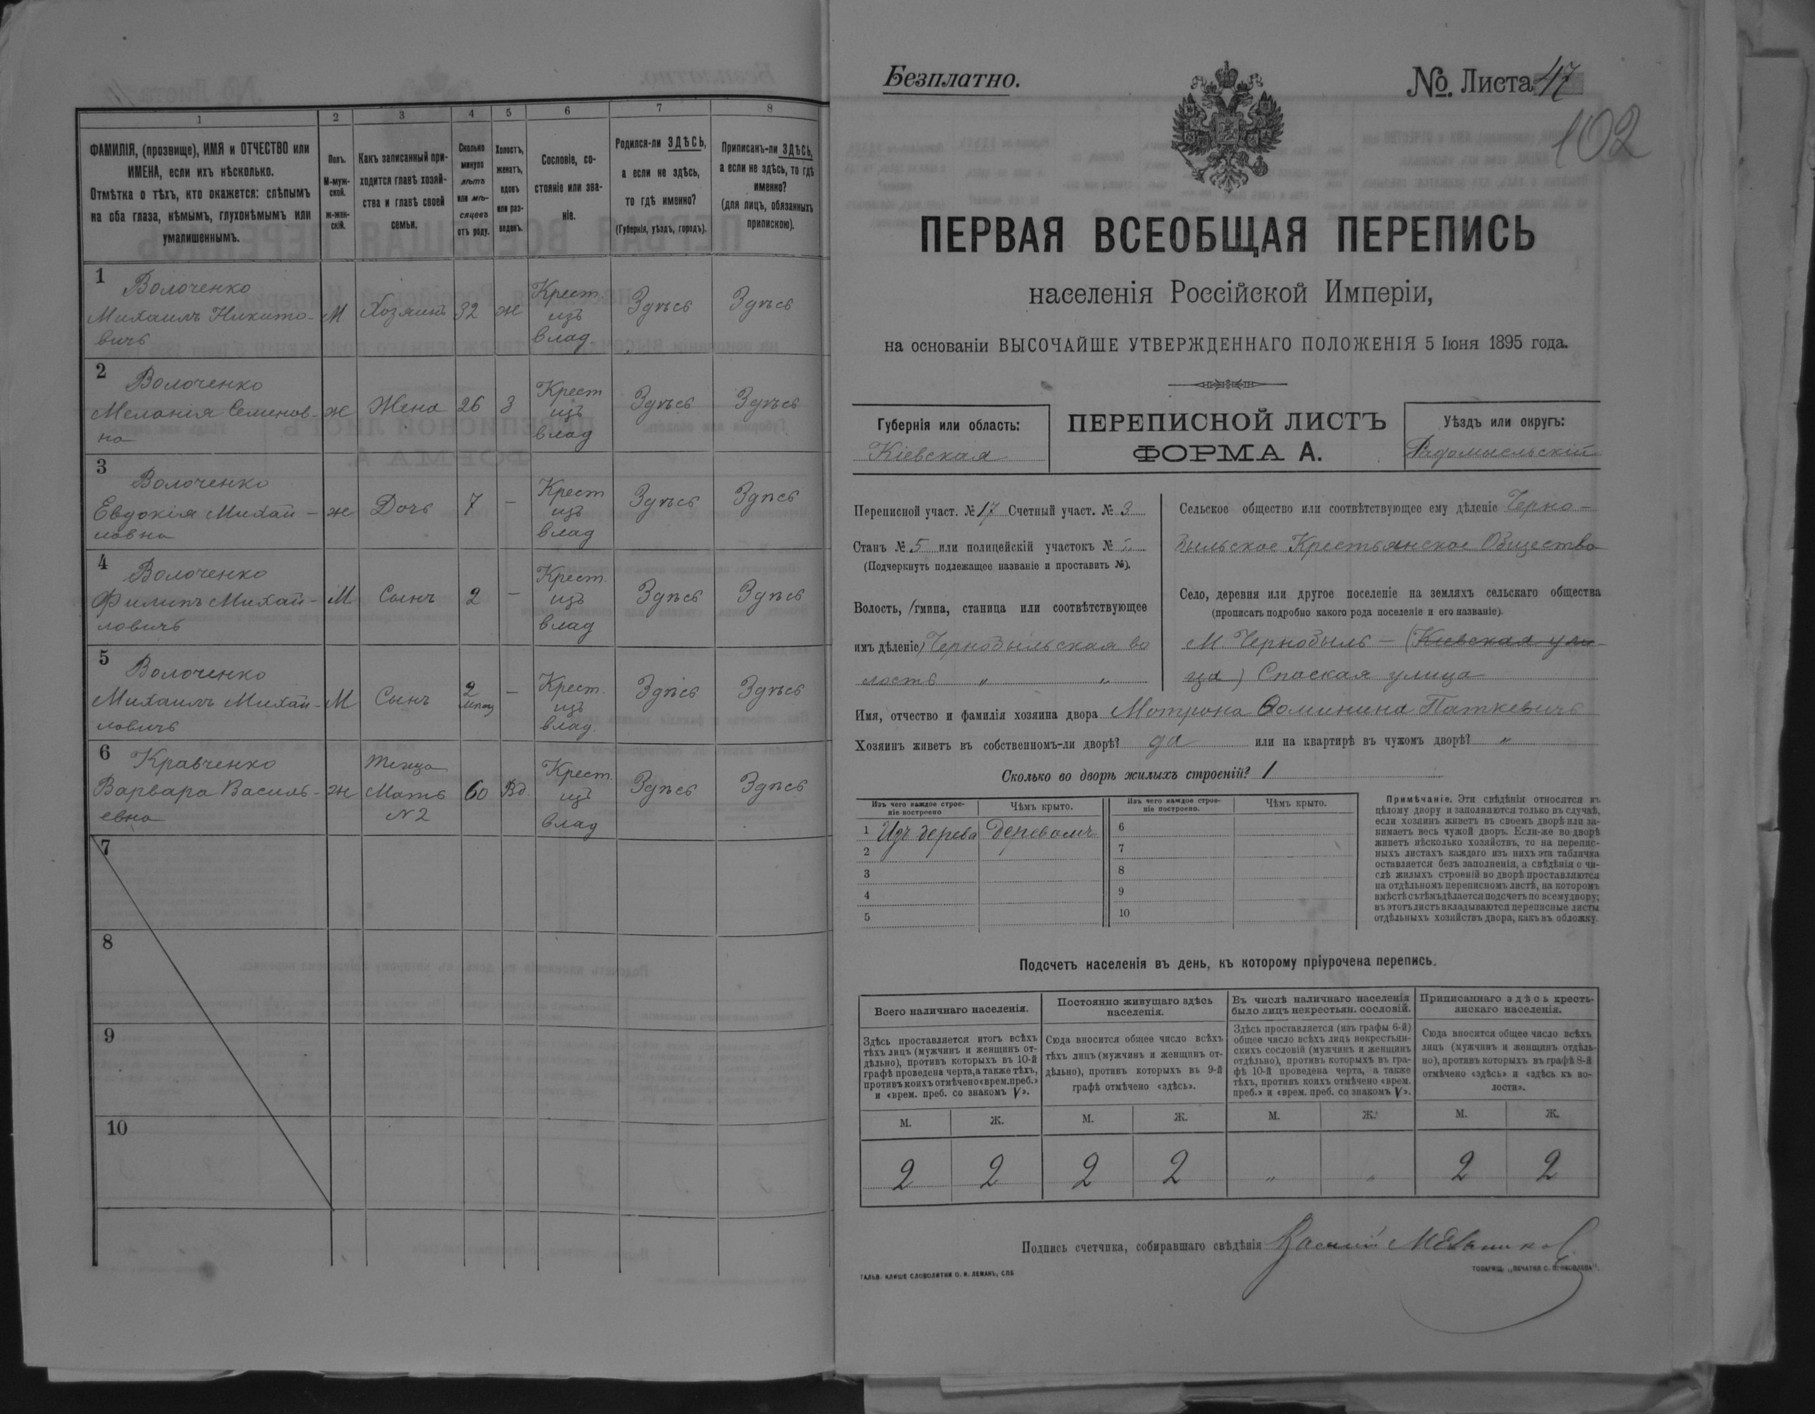 1 2 3 4 5 6 7 8
ФАМИЛІЯ, (прозвище), ИМЯ и ОТЧЕСТВО или
ИМЕНА, если ихъ нѣсколько.
Отмѣтка о тѣхъ, кто окажется: слѣпымъ
на оба глаза, нѣмымъ, глухонѣмымъ или
умалишеннымъ.
Полъ.
М-муж-
ской.
ж-жен-
скій.
Какъ записанный при-
ходится главѣ хозяй-
ства и главѣ своей
семьи.
Сколько
минуло
лѣтъ
или мѣ-
сяцевъ
отъ роду.
Холостъ,
женатъ,
вдовъ
или раз-
веденъ.
Сословіе, со-
стояніе или зва-
ніе.
Родился-ли ЗДѢСЬ,
а если не здѣсь,
то гдѣ именно?
(Губернія, уѣздъ, городъ).
Приписанъ-ли ЗДѢСЬ,
а если не здѣсь, то гдѣ
именно?
(для лицъ, обязанныхъ
припискою).
1 Волоченко
Михаилъ Никито-
вичъ
М Хозяинъ 32 ж Крест.
изъ
влад. Здѣсь Здѣсь
2 Волоченко
Меланія Семенов-
на
ж Жена 26 З Крест
изъ
влад Здѣсь Здѣсь
3 Волоченко
Евдокія Михай-
ловна
ж Дочь 7 — Крест
изъ
влад Здѣсь Здѣсь
4 Волоченко
Филипъ Михай-
ловичъ
М Сынъ 2 — Крест.
изъ
влад Здѣсь Здѣсь
5 Волоченко
Михаилъ Михай-
ловичъ
М Сынъ 2
— Крест.
изъ
влад. Здѣсь Здѣсь
6 Кравченко
Варвара Василь-
евна
ж Теща
Мать
N2 60 Вд. Крест.
изъ
влад Здѣсь Здѣсь
7
8
9
10
Безплатно.
№. Листа 47
102
ПЕРВАЯ ВСЕОБЩАЯ ПЕРЕПИСЬ
населенія Россійской Имперіи,
на основаніи ВЫСОЧАЙШЕ УТВЕРЖДЕННАГО ПОЛОЖЕНІЯ 5 Іюня 1895 года.
Губернія или область:
Кіевская
ПЕРЕПИСНОЙ ЛИСТЪ
ФОРМА А.
Уѣздъ или округъ:
Радомысльскій
Переписной участ. № 17 Счетный участ. № 3
Станъ № 5 или полицейскій участокъ №
(Подчеркнуть подлежащее названіе и проставить №).
Волость, /гмина, станица или соотвѣтствующее
имъ дѣленіе) Чернобыльская во
лость „ „
Сельское общество или соотвѣтствующее ему дѣленіе Черно-
быльское Крестьянское Общество
Село, деревня или другое поселеніе на земляхъ сельскаго общества
(прописать подробно какого рода поселеніе и его названіе).
М. Чернобыль — (Кіевская ули-
ца) Спаская улица
Имя, отчество и фамилія хозяина двора Мотрона Ѳоминина Паткевичъ
Хозяинъ живетъ въ собственномъ-ли дворѣ? да или на квартирѣ въ чужомъ дворѣ? „
Сколько во дворѣ жилыхъ строеній? 1
Изъ чего каждое строе-
ніе построено
Чѣмъ крыто.
Изъ чего каждое строе-
ніе построено.
Чѣмъ крыто.
1 Изъ дерева деревомъ
2
3
4
5
6
7
8
9
10
Примѣчаніе. Эти свѣдѣнія относятся къ
цѣлому двору и заполняются только въ случаѣ,
если хозяинъ живетъ въ своемъ дворѣ или за-
нимаетъ весь чужой дворъ. Если-же во дворѣ
живетъ нѣсколько хозяйствъ, то на перепис-
ныхъ листахъ каждаго изъ нихъ эта табличка
оставляется безъ заполненія, а свѣдѣнія о чи-
слѣ жилыхъ строеній во дворѣ проставляются
на отдѣльномъ переписномъ листѣ, на которомъ
вмѣстѣ съ тѣмъ дѣлается подсчетъ по всему двору;
въ этотъ листъ вкладываются переписные листы
отдѣльныхъ хозяйствъ двора, какъ въ обложку.
Подсчетъ населенія въ день, къ которому пріурочена перепись.
Всего наличнаго населенія.
Здѣсь проставляется итогъ всѣхъ
тѣхъ лицъ (мужчинъ и женщинъ от-
дѣльно), противъ которыхъ въ 10-й
графѣ проведена черта, а также тѣхъ,
противъ коихъ отмѣчено «врем. преб.»
и «врем. преб. со знакомъ V».
Постоянно живущаго здѣсь
населенія.
Сюда вносится общее число всѣхъ
тѣхъ лицъ (мужчинъ и женщинъ от-
дѣльно), противъ которыхъ въ 9-й
графѣ отмѣчено «здѣсь».
Въ числѣ наличнаго населенія
было лицъ некрестьян. сословій.
Здѣсь проставляется (изъ графы 6-й)
общее число всѣхъ лицъ некрестьян-
скихъ сословій (мужчинъ и женщинъ
отдѣльно), противъ которыхъ въ гра-
фѣ 10-й проведена черта, а также
тѣхъ, противъ коихъ отмѣчено «врем.
преб.» и «врем. преб. со знакомъ V».
Приписаннаго здѣсь кресть-
янскаго населенія.
Сюда вносится общее число всѣхъ
лицъ (мужчинъ и женщинъ отдѣль-
но), противъ которыхъ въ графѣ 8-й
отмѣчено «здѣсь» и «здѣсь къ во-
лости».
М. Ж. М. Ж. М. Ж. М. Ж.
2 2 2 2 „ „ 2 2
Подпись счетчика, собиравшаго свѣдѣнія
ГАЛЬВ. КЛИШЕ СЛОВОЛИТНИ О. И. ЛЕМАНЪ, СПБ.